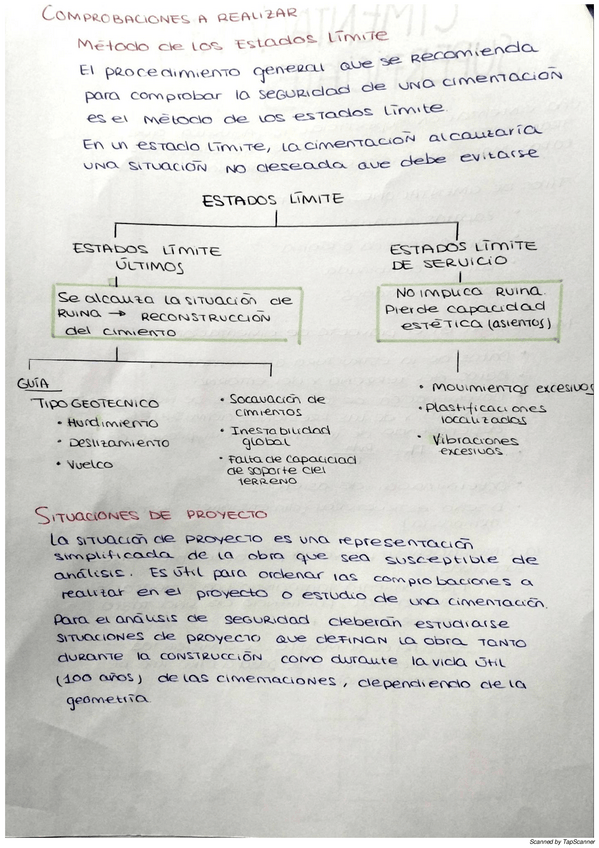 COMPROBACIONES A REALIZAR
Método de los Estados Límite
El procedimiento general que se recomienda
para comprobar la seguridad de una cimentación
es el método de los estados límite.
En un estado límite, la cimentación alcanzaría
una situación no deseada que debe evitarse
ESTADOS LÍMITE
ESTADOS LÍMITE
ÚLTIMOS
ESTADOS LÍMITE
DE SERVICIO
Se alcanza la situación de
RUINA → RECONSTRUCCIÓN
del cimiento
No implica RUINA.
Pierde capacidad
estética (asientos)
GUÍA
TIPO GEOTECNICO
• Hundimiento
• Deslizamiento
• Vuelco
• Socavación de
cimientos
• Inestabilidad
global
• Falta de capacidad
de soporte del
terreno
• Movimientos excesivos
• Plastificaciones
localizadas
• Vibraciones
excesivos
SITUACIONES DE PROYECTO
La situación de proyecto es una representación
simplificada de la obra que sea susceptible de
análisis. Es útil para ordenar las comprobaciones a
realizar en el proyecto o estudio de una cimentación.
Para el análisis de seguridad deberán estudiarse
situaciones de proyecto que definan la obra tanto
durante la construcción como durante la vida útil
(100 años) de las cimentaciones, dependiendo de la
geometría.
Scanned by TapScanner